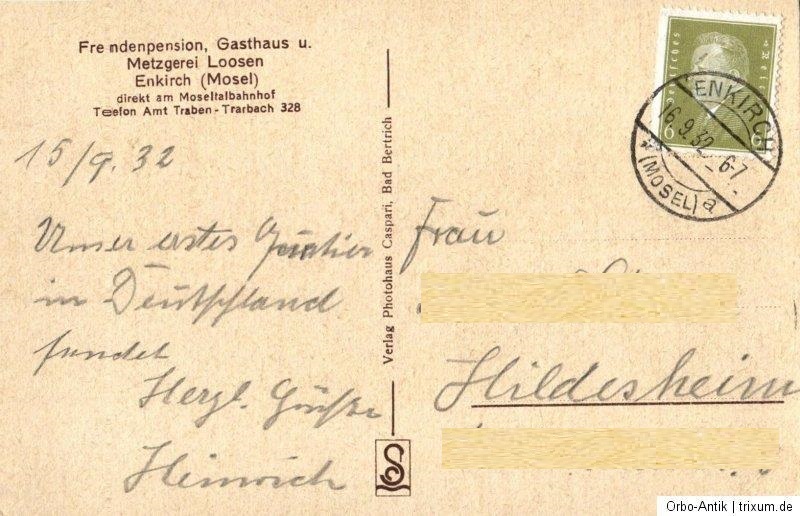 Fremdenpension, Gasthaus u.
Metzgerei Loosen
Enkirch (Mosel)
direkt am Moseltalbahnhof
Telefon Amt Traben-Trarbach 328
15/9. 32
Unser erstes Quartier
in Deutschland
sendet
Herzl. Grüße
Heinrich
Verlag Photohaus Caspari, Bad Bertrich
ENKIRCH
6.9.32 6-7
(MOSEL) a
6 6
Frau
Hildesheim
Orbo-Antik | trixum.de